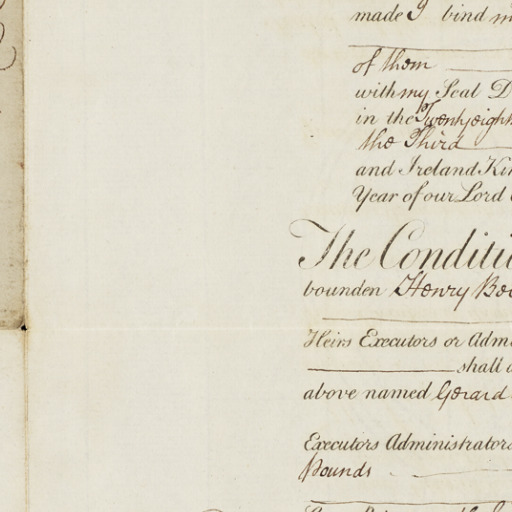 made I bind m
of them
with my Seal D
in the Twentyeight
the Third
and Ireland Kin
Year of our Lord
The Conditi
bounden Henry Be
Heirs Executors or Adm
shall
above named Gerard
Executors Administrators
Pounds